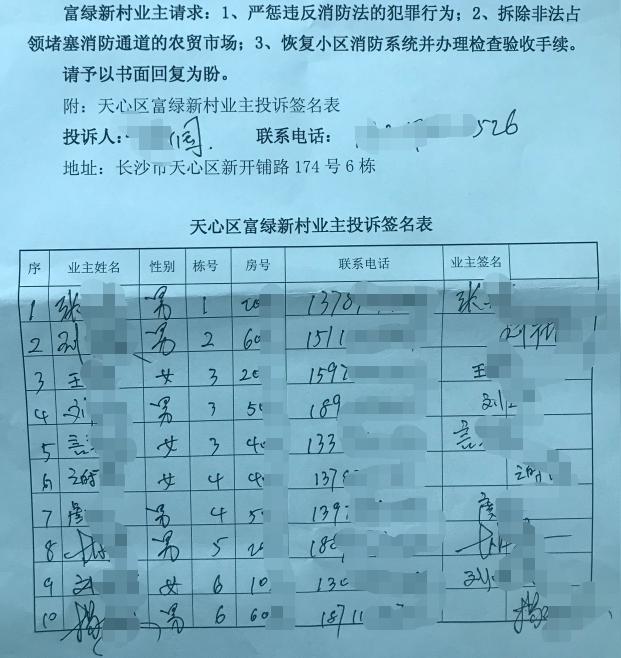 富绿新村业主请求：1、严惩违反消防法的犯罪行为；2、拆除非法占
领堵塞消防通道的农贸市场；3、恢复小区消防系统并办理检查验收手续。
请予以书面回复为盼。
附：天心区富绿新村业主投诉签名表
投诉人： 联系电话： 526
地址：长沙市天心区新开铺路 174 号 6 栋
天心区富绿新村业主投诉签名表
序 业主姓名 性别 栋号 房号 联系电话 业主签名
1 张 男 1 20 1378 张
2 刘 男 2 60 1511
3 王 女 3 20 1597 王
4 刘 男 3 50 189 刘
5 女 3 40 133
6 女 4 40 1378
7 男 4 50 139
8 男 5 20 18
9 刘 女 6 10 13 刘
10 杨 男 6 60 1871 杨